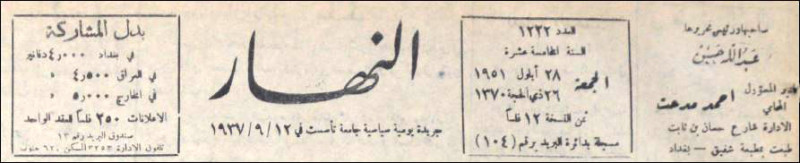 صاحبها ورئيس تحريرها
عبد الله حسن
المدير المسؤول
المحامي احمد مدحت
الادارة شارع حسان بن ثابت
طبعت بمطبعة شفيق - بغداد
العدد ١٢٢٢
السنة الخامسة عشرة
الجمعة
٢٨ أيلول ١٩٥١
٢٦ ذي الحجة ١٣٧٠
ثمن النسخة ١٢ فلساً
مسجلة بدائرة البريد برقم (١٠٤)
النهار
جريدة يومية سياسية جامعة تأسست في ١٢/٩/١٩٣٧
بدل المشاركة
في بغداد ٤٫٠٠٠ دنانير
في العراق ٤٫٥٠٠
في الخارج ٥٫٠٠٠
الاعلانات ٢٥٠ فلساً للعقد الواحد
صندوق البريد رقم ١٣
تلفون الادارة ٣٢٥٣ السكن ٦٢٠ جنوب